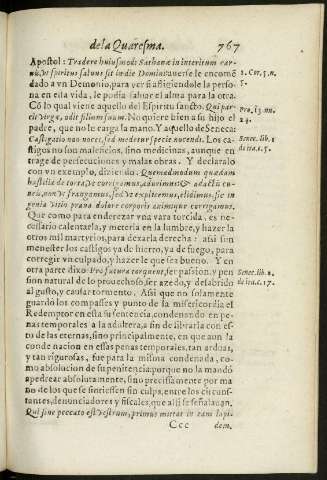 de la Quaresma. 767
Apostol: Tradere huiusmodi Sathanæ in interitum car-
nis, vt spiritus saluus sit in die Domini: auerse le encomē
dado a vn Demonio, para ver si afligiendole la perso
na en esta vida, le podia sahorrar el alma para la otra.
Cō lo qual viene aquello del Espiritu sancto. Qui par-
cit virgæ, odit filium suum. No quiere bien a su hijo el
padre, que no le carga la mano. Y aquello de Seneca:
Castigatio non nocet, sed medetur specie nocendi. Los ca-
stigos no son maleficios, sino medicinas, aunque en
trage de persecuciones y malas obras. Y declaralo
con vn exemplo, diziendo. Quemadmodum quædam
hastilia detorta, vt corrigamus, adurimus: & adactis cu-
neis, non vt frangamus, sed vt explicemus, elidimus: sic in
genia vitio praua dolore corporis animique corrigamus.
Que como para endereçar vna vara torcida, es ne-
cessario calentarla, y meterla en la lumbre, y hazer la
otros mil martyrios, para dexarla derecha: assi son
menester los castigos ya de hierro, ya de fuego, para
corregir vn culpado, y hazer le que sea bueno. Y en
otra parte dixo: Profutura torquent, ser passion, y pen
sion natural de lo prouechoso, ser azedo, y desabrido
al gusto, y causar tormento. Assi que no solamente
guardó los compasses y punto de la misericordia el
Redemptor en esta su sentencia, condenando en pe-
nas temporales a la adultera, a fin de librarla con es-
tas de las eternas, sino principalmente, en que aun la
conde nacion en estas penas temporales, tan arduas,
y tan rigurosas, fue para la misma condenada, co-
mo absolucion de su penitencia: porque no la mandó
apedrear absolutamente, sino precisamente por ma
no de los que se sintiessen sin culpa, entre los circuns-
tantes, denunciadores y fiscales, que alli se señalauan.
Qui sine peccato est vestrum, primus mittat in eam lapi-
Ccc dem.
1. Cor. 5. n.
5.
Pro. 13. nu.
24.
Senec. lib. 1.
de ira. c. 5.
Senec. lib. 2.
de ira. c. 17.